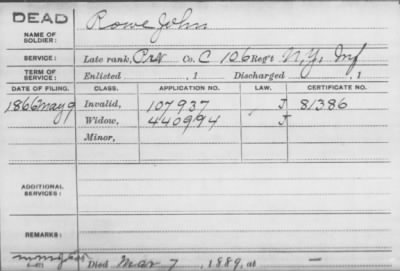 DEAD
NAME OF SOLDIER: Rowe John
SERVICE: Late rank, Prv Co. C 106 Reg't N.Y. Inf
TERM OF SERVICE: Enlisted , 1 Discharged , 1
DATE OF FILING. CLASS. APPLICATION NO. LAW. CERTIFICATE NO.
1866 May 9 Invalid, 107937 J 81386
Widow, 440994 J
Minor,
ADDITIONAL SERVICES:
REMARKS:
Died Mar 7 , 1889, at —